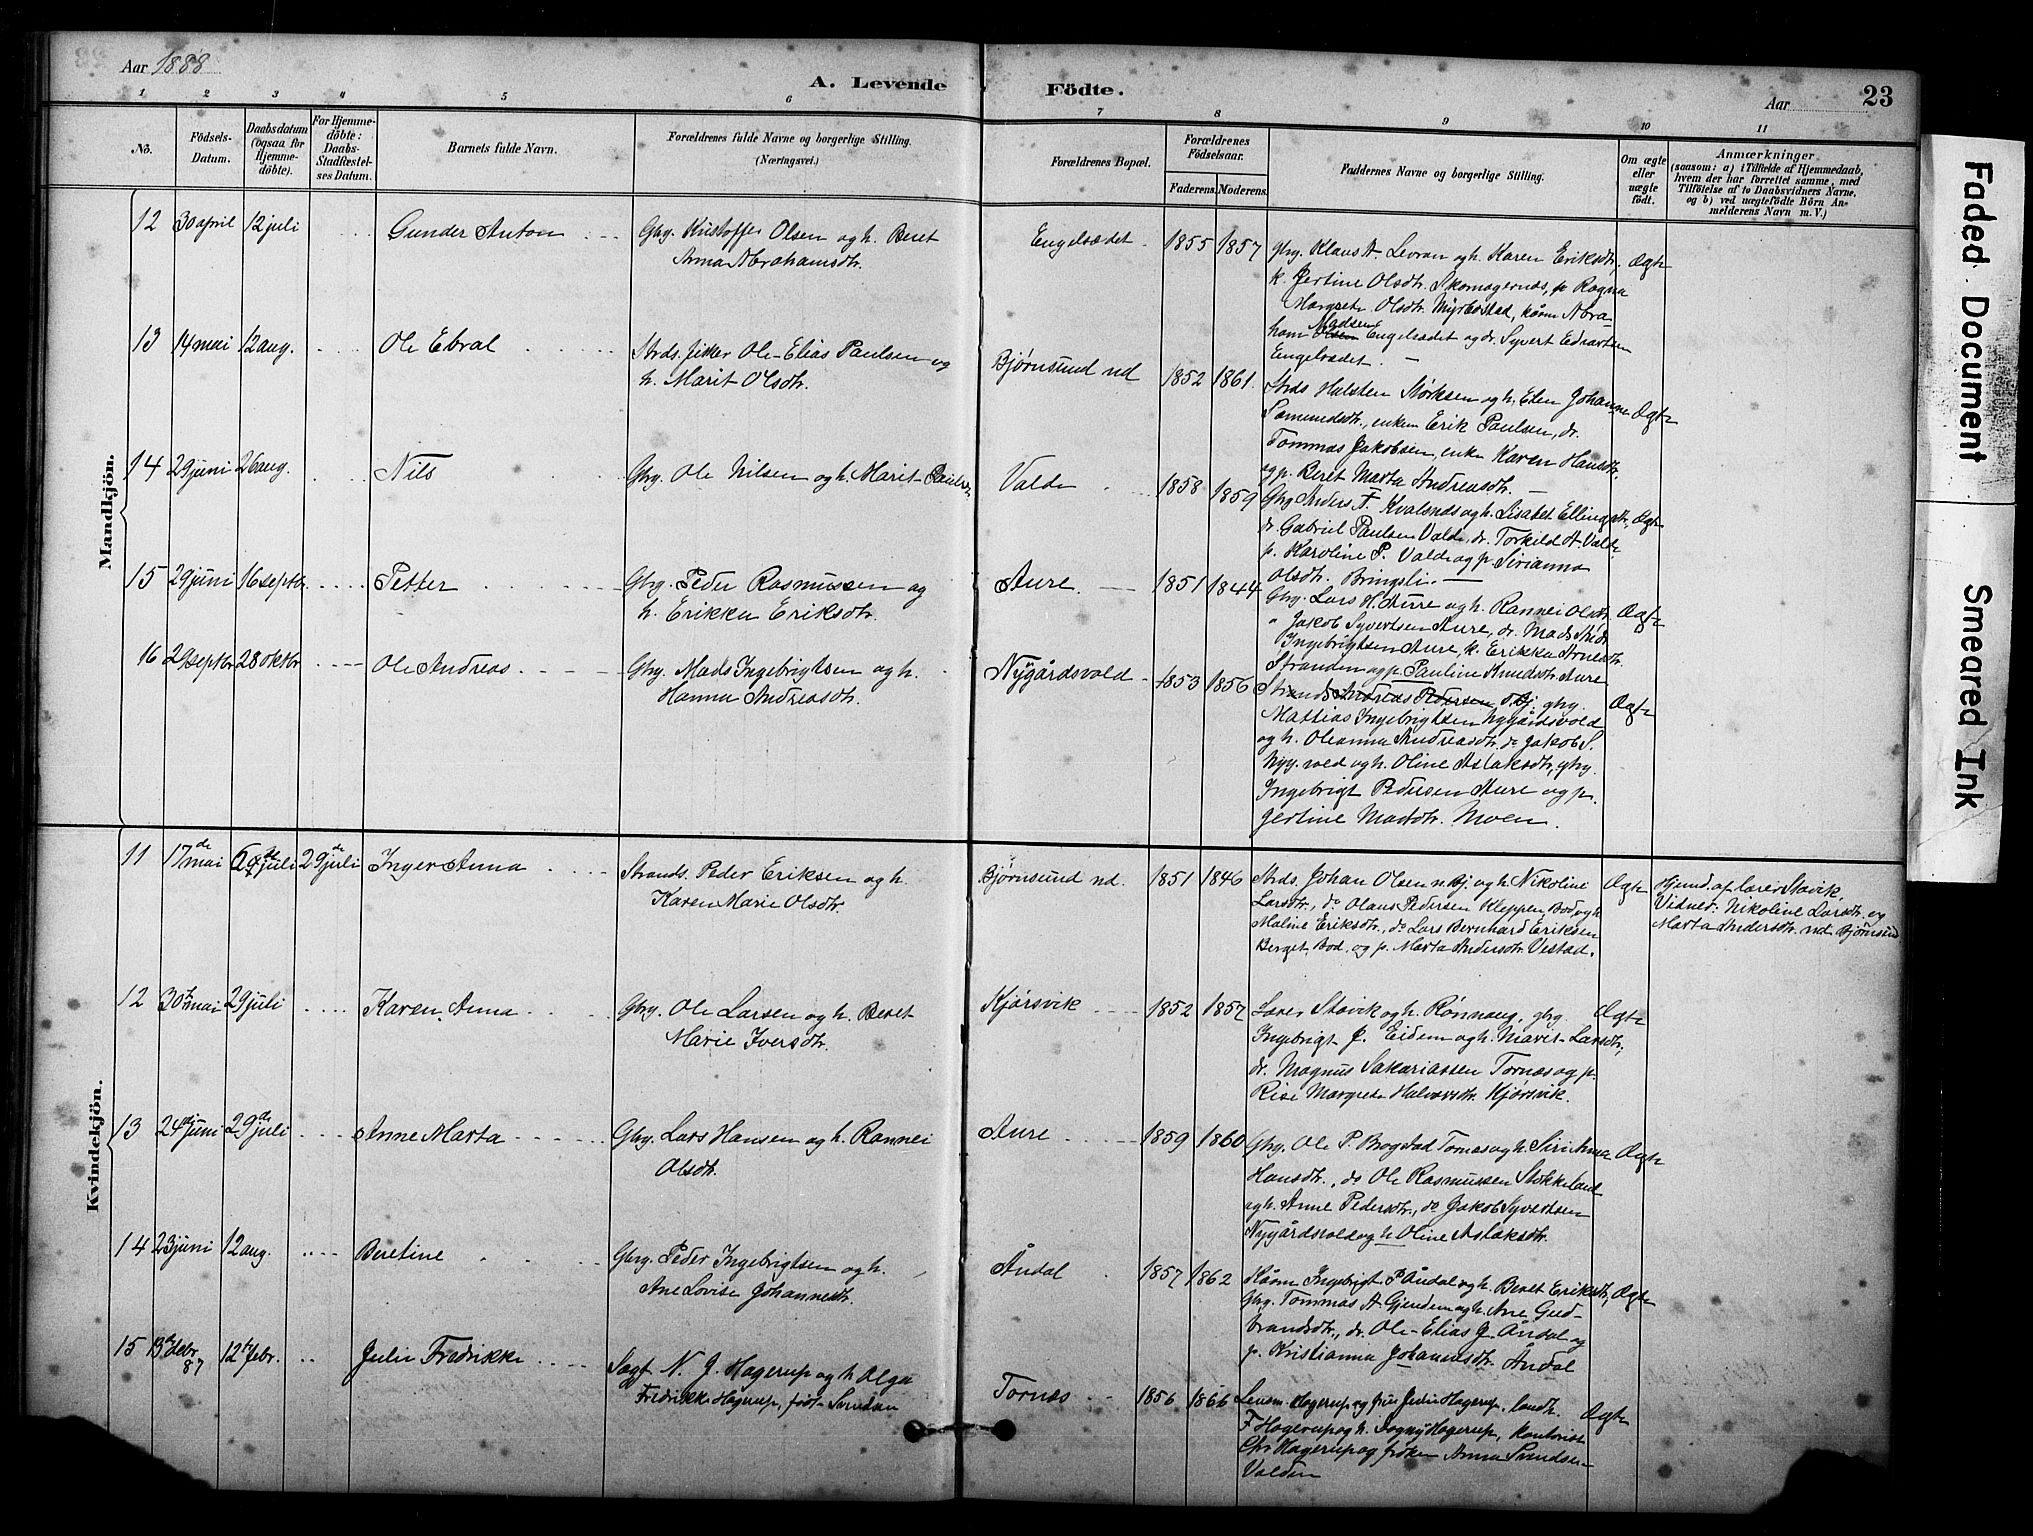 Aar 1888
A. Levende Födte.
Aar
23
1 2 3 4 5 6 7 8 9 10 11
No.
Födsels-Datum.
Daabsdatum (ogsaa for Hjemme-döbte).
For Hjemme-döbte: Daabs-Stadfæstel-ses Datum.
Barnets fulde Navn.
Forældrenes fulde Navne og borgerlige Stilling. (Næringsvei.)
Forældrenes Bopæl.
Forældrenes Födselsaar.
Faderens. Moderens.
Faddernes Navne og borgerlige Stilling.
Om ægte eller uægte födt.
Anmærkninger
(saasom: a) i Tilfælde af Hjemmedaab, hvem der har forrettet samme, med Tilföielse af to Daabsvidners Navne, og b) ved uægtefödte Börn An-melderens Navn m. V.)
Mandkjön.
12 30 april 12 juli Gunder Anton Gbrg. Kristoffer Olsen og h. Beret
Anna Abrahamsdtr.
Engelsædet 1855 1857 gbrg. Klaus A Levran og h. Karen Eriksdtr, Ægte
k. Jertine Olsdtr. Skomagernæs, p Ragna
Margrete Olsdtr. Myrbostad, kårm Abra-
ham Madsen Engelsædet og dr. Syvert Edvartsen
Engelsædet. —
13 14 mai 12 aug. Ole Ebral Strds. fisker Ole-Elias Paulsen og
h. Marit Olsdtr.
Bjørnsund nd 1852 1861. Strds Halsten Størksen og h. Elen Johanne Ægte
Samundsdtr., enkem Erik Paulsen, dr.
Tommas Jakobsen, enke Karen Hansdtr.
og p. Beret Marta Andreasdtr. —
14 29 juni 26 aug. Nils Gbrg. Ole Nilsen og h. Marit Paulsdtr.
Valde 1858 1859 Gbrg Anders F. Kvalsnds og h. Lisabet Ellingsdtr, Ægte
dr. Gabriel Paulsen Valde, dr. Torkild A. Valde
p. Karoline P. Valde og p Sirianna
Olsdtr. Bringsli. —
15 29 juni 16 septbr. Petter Gbrg. Peder Rasmussen og
h. Erikka Eriksdtr.
Aure. 1851 1844 Gbrg. Lars H. Aure og h. Rannei Olsdtr. Ægte
" Jakob Syvertsen Aure, dr. Mads
Ingebrigtsen Aure, k. Erikka Arnesdtr.
Stranden og p. Pauline Knudsdtr. Aure
16 29 septbr 28 oktbr Ole Andreas Gbrg. Mads Ingebrigtsen og h.
Hanna Andreasdtr.
Nygårdsvold 1853 1856 Strands Andreas Pedersen Bj. gbrg. Ægte
Mattias Ingebrigtsen Nygårdsvold
og h. Oleanna Andreasdtr, do Jakob S.
Nyg. vold og h. Oline Aslaksdtr, gbrg.
Ingebrigt Pedersen Aure og p.
Jertine Madsdtr. Moen.
Kvindekjön.
11 17de mai 6de juli 29de juli Inger Anna Strands. Peder Eriksen og h.
Karen Marie Olsdtr.
Bjørnsund nd. 1851 1846 Strds. Johan Olsen n. Bj. og h. Nikoline Ægte
Larsdtr., do Olaus Pedersen Kleppen Bod og h.
Maline Eriksdtr., do Lars Bernhard Eriksen
Berget, Bod, og p. Marta Andersdtr. Vestad.
Hjemd. af lærer Stavik,
Vidner: Nikoline Larsdtr. og
Marta Andersdtr. nd. Bjørnsund
12 30te mai 29 juli Karen Anna Gbrg. Ole Larsen og h. Beret
Marie Iversdtr.
Kjørsvik 1852 1857 Lærer Stavik og h. Rønnaug, gbrg. Ægte
Ingebrigt J. Eidem og h. Marit Larsdtr,
dr. Magnus Sakariassen Tornæs og p.
Rise Margrete Halvorsdtr. Kjørsvik.
13 24de juni 29de juli Anne Marta Gbrg. Lars Hansen og h. Rannei
Olsdtr.
Aure 1859 1860 Gbrg. Ole P. Brogstad Tornæs og h. Siri Anna Ægte
Hansdtr., do Ole Rasmussen Stokkeland
og h. Anne Pedersdtr., do Jakob Syvertsen
Nygårdsvold og h Oline Aslaksdtr.
14 23 juni 12 aug. Beretine Gbrg. Peder Ingebrigtsen og h.
Ane Lovise Johannesdtr.
Åndal 1857 1862 Kårm Ingebrigt P Åndal og h. Beret Eriksdtr, Ægte
gbrg. Tommas A Gjendem og h. Ane Gud-
brandsdtr., dr. Ole-Elias J. Åndal og
p. Kristianna Johannesdtr. Åndal
15 13de debr 87 12te febr. Julie Fredrikke Sagf. N. J. Hagerup og h Olga
Fredrikke Hagerup, født
Tornæs 1856 1866 Lensm. Hagerup og frue Julie Hagerup, landh. Ægte
F Hagerup og h. Dagny Hagerup, kontorist
Chr Hagerup og frøken Anna
Valden
Faded Document
Smeared Ink